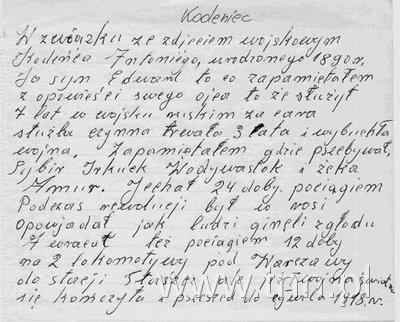 Kodeniec
W związku ze zdjęciem wojskowym
Kodeńca Antoniego, urodzonego 1890r.
Ja syn Edward to co zapamiętałem
z opowieści swego ojca to że służył
7 lat w wojsku ruskim za cara
służba czynna trwała 3 lata i wybuchła
wojna. Zapamiętałem gdzie przebywał,
Sybir Irkuck Wodywastok i rzeka
Amur. Jechał 24 doby pociągiem
Podczas rewolucji był w rosi
Opowiadał jak ludzi gineli z głodu
I wracał też pociągiem 12 doby
na 2 lokomotywy pod Warszawy
do stacji
się kończyła i przeszed do cywila 1918.r.